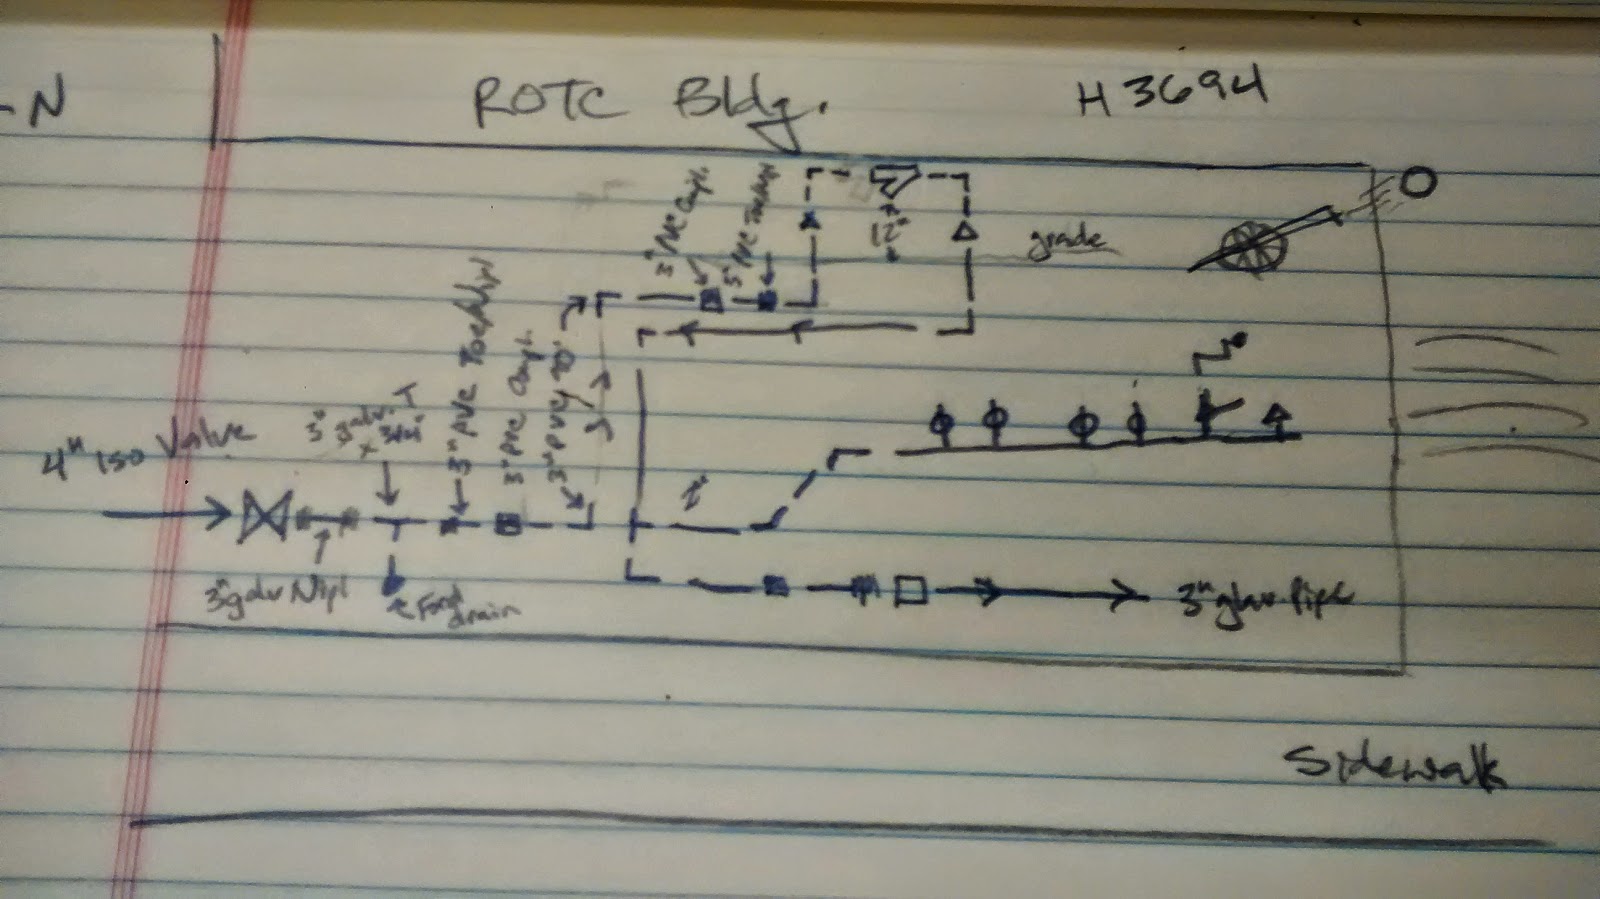 - N
ROTC Bldg.
H 3694
3" PVC Coupl.
12"
grade
4" Iso Valve
3" galv.
3" PVC Toe Nip
3" PVC Coupl.
3" PVC 90°
2"
3" galv Nipl
Ford drain
3" glav. Pipe
Sidewalk